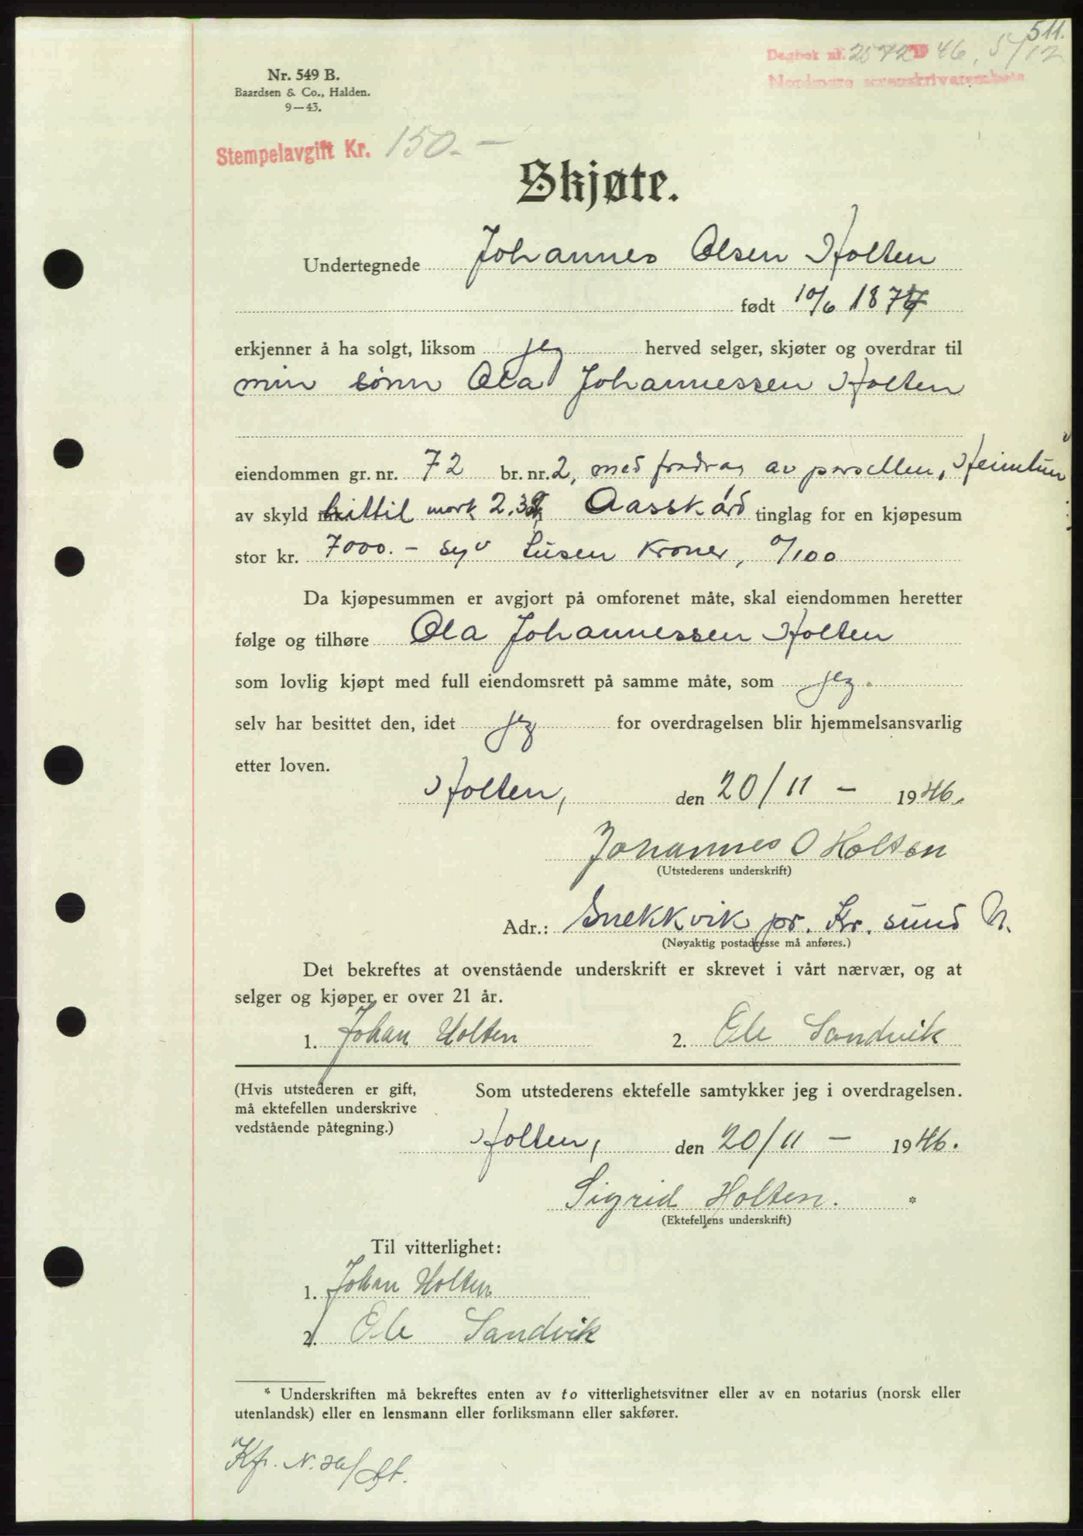 511.
Dagbok nr. 2572 1946, 5/12
Nordmøre sorenskriverembete
Nr. 549 B.
Baardsen & Co., Halden.
9—43.
Stempelavgift Kr. 150.-
Skjøte.
Undertegnede Johannes Olsen Holten
født 10/6 1877
erkjenner å ha solgt, liksom jeg herved selger, skjøter og overdrar til
min sønn Ola Johannessen Holten
eiendommen gr. nr. 72 br. nr. 2, med fradrag av parsellen, "Heimtun"
av skyld hittil mark 2.38 Aasskård tinglag for en kjøpesum
stor kr. 7000.- syv tusen kroner, 0/100
Da kjøpesummen er avgjort på omforenet måte, skal eiendommen heretter
følge og tilhøre Ola Johannessen Holten
som lovlig kjøpt med full eiendomsrett på samme måte, som jeg.
selv har besittet den, idet jeg for overdragelsen blir hjemmelsansvarlig
etter loven.
Holten, den 20/11 - 1946.
Johannes O Holten
(Utstederens underskrift)
Adr.: Snekkvik pr. Kr. sund N.
(Nøyaktig postadresse må anføres.)
Det bekreftes at ovenstående underskrift er skrevet i vårt nærvær, og at
selger og kjøper er over 21 år.
1. Johan Holten 2. Ole Sandvik
(Hvis utstederen er gift, Som utstederens ektefelle samtykker jeg i overdragelsen.
må ektefellen underskrive
vedstående påtegning.)
Holten, den 20/11 - 1946.
Sigrid Holten. *
(Ektefellens underskrift)
Til vitterlighet:
1. Johan Holten
2. Ole Sandvik
* Underskriften må bekreftes enten av to vitterlighetsvitner eller av en notarius (norsk eller
utenlandsk) eller en lensmann eller forliksmann eller sakfører.
Kfr. N.